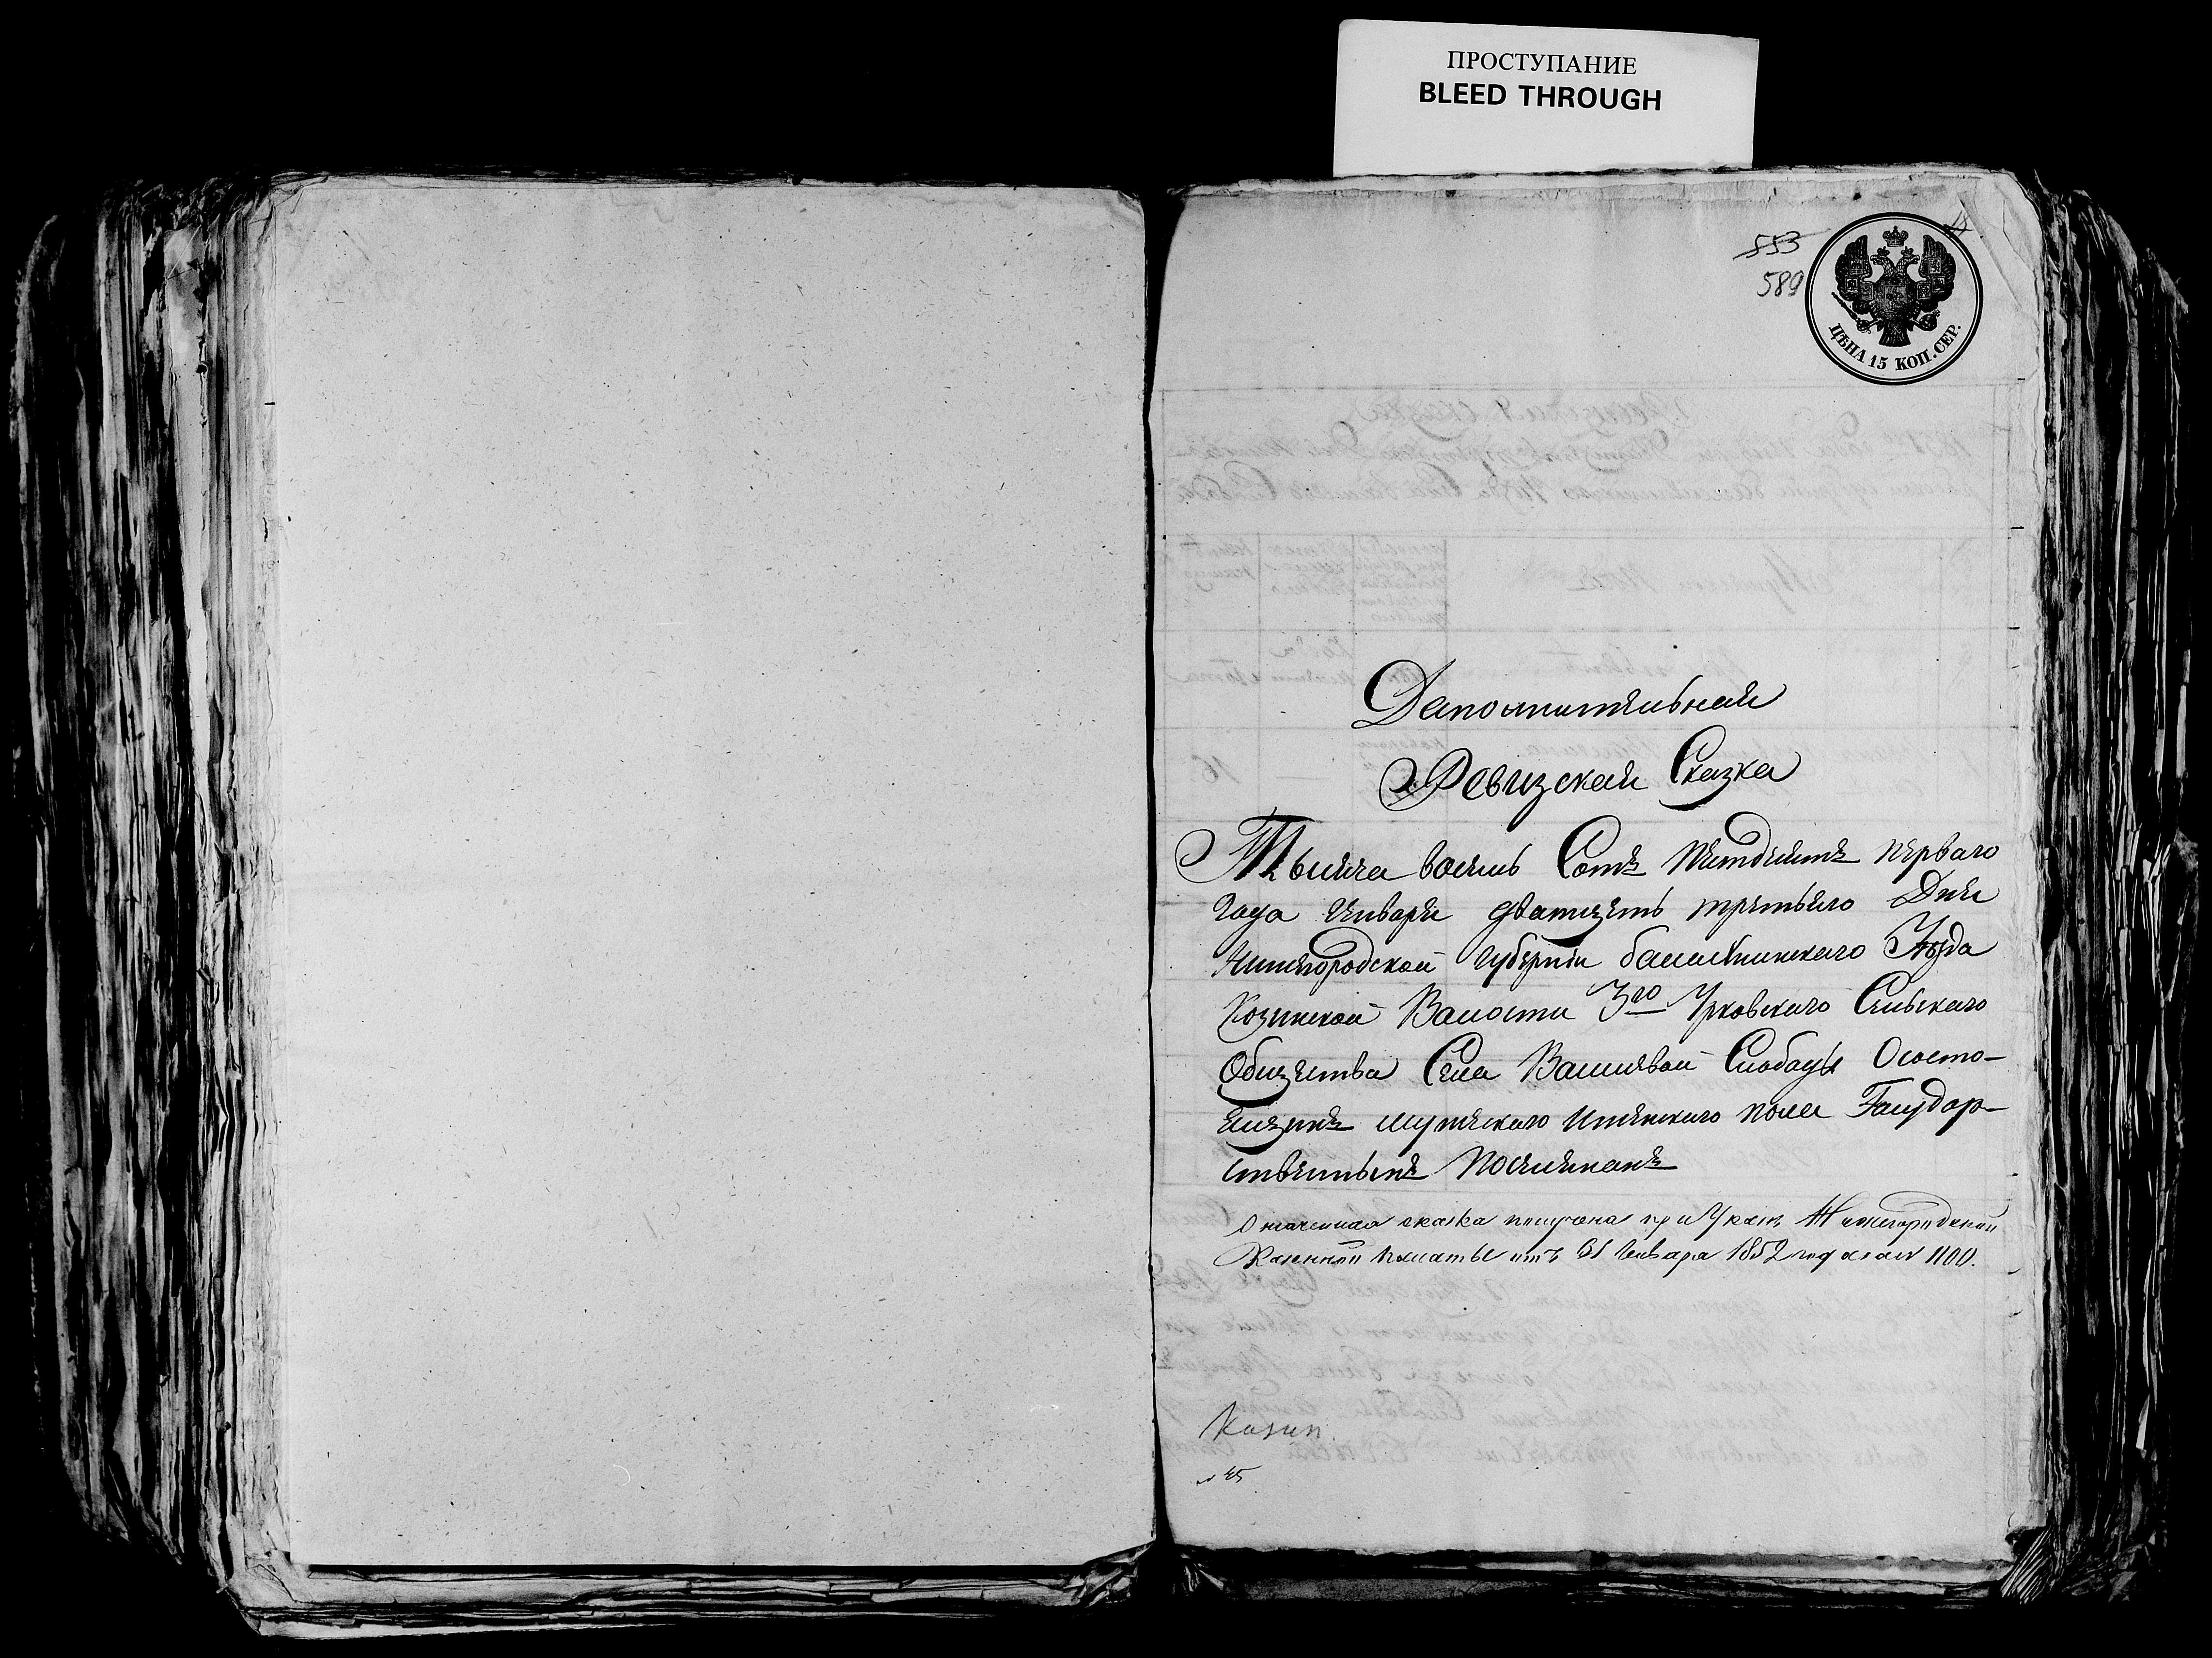 ПРОСТУПАНИЕ
BLEED THROUGH
553
589
ЦѢНА 15 КОП. СЕР.
Даполнительная
Ревизская Сказка
Тысяча восемь Сотъ Пятдесятъ перваго
Года Генваря дватцеть третьяго Дня
Нижегородской Губерніи балахнинскаго Уѣзда
Козинской Валости 3го Урковскаго Сельскаго
Общества Села Васильявой Слободы О состо-
ящихъ мужескаго и женскаго пола Государ-
ственныхъ Поселянахъ
Означенная сказка получена при Указѣ Нижегородской
Казенной палаты отъ 31 Генваря 1852 года за № 1100.
Казин.
№ 45